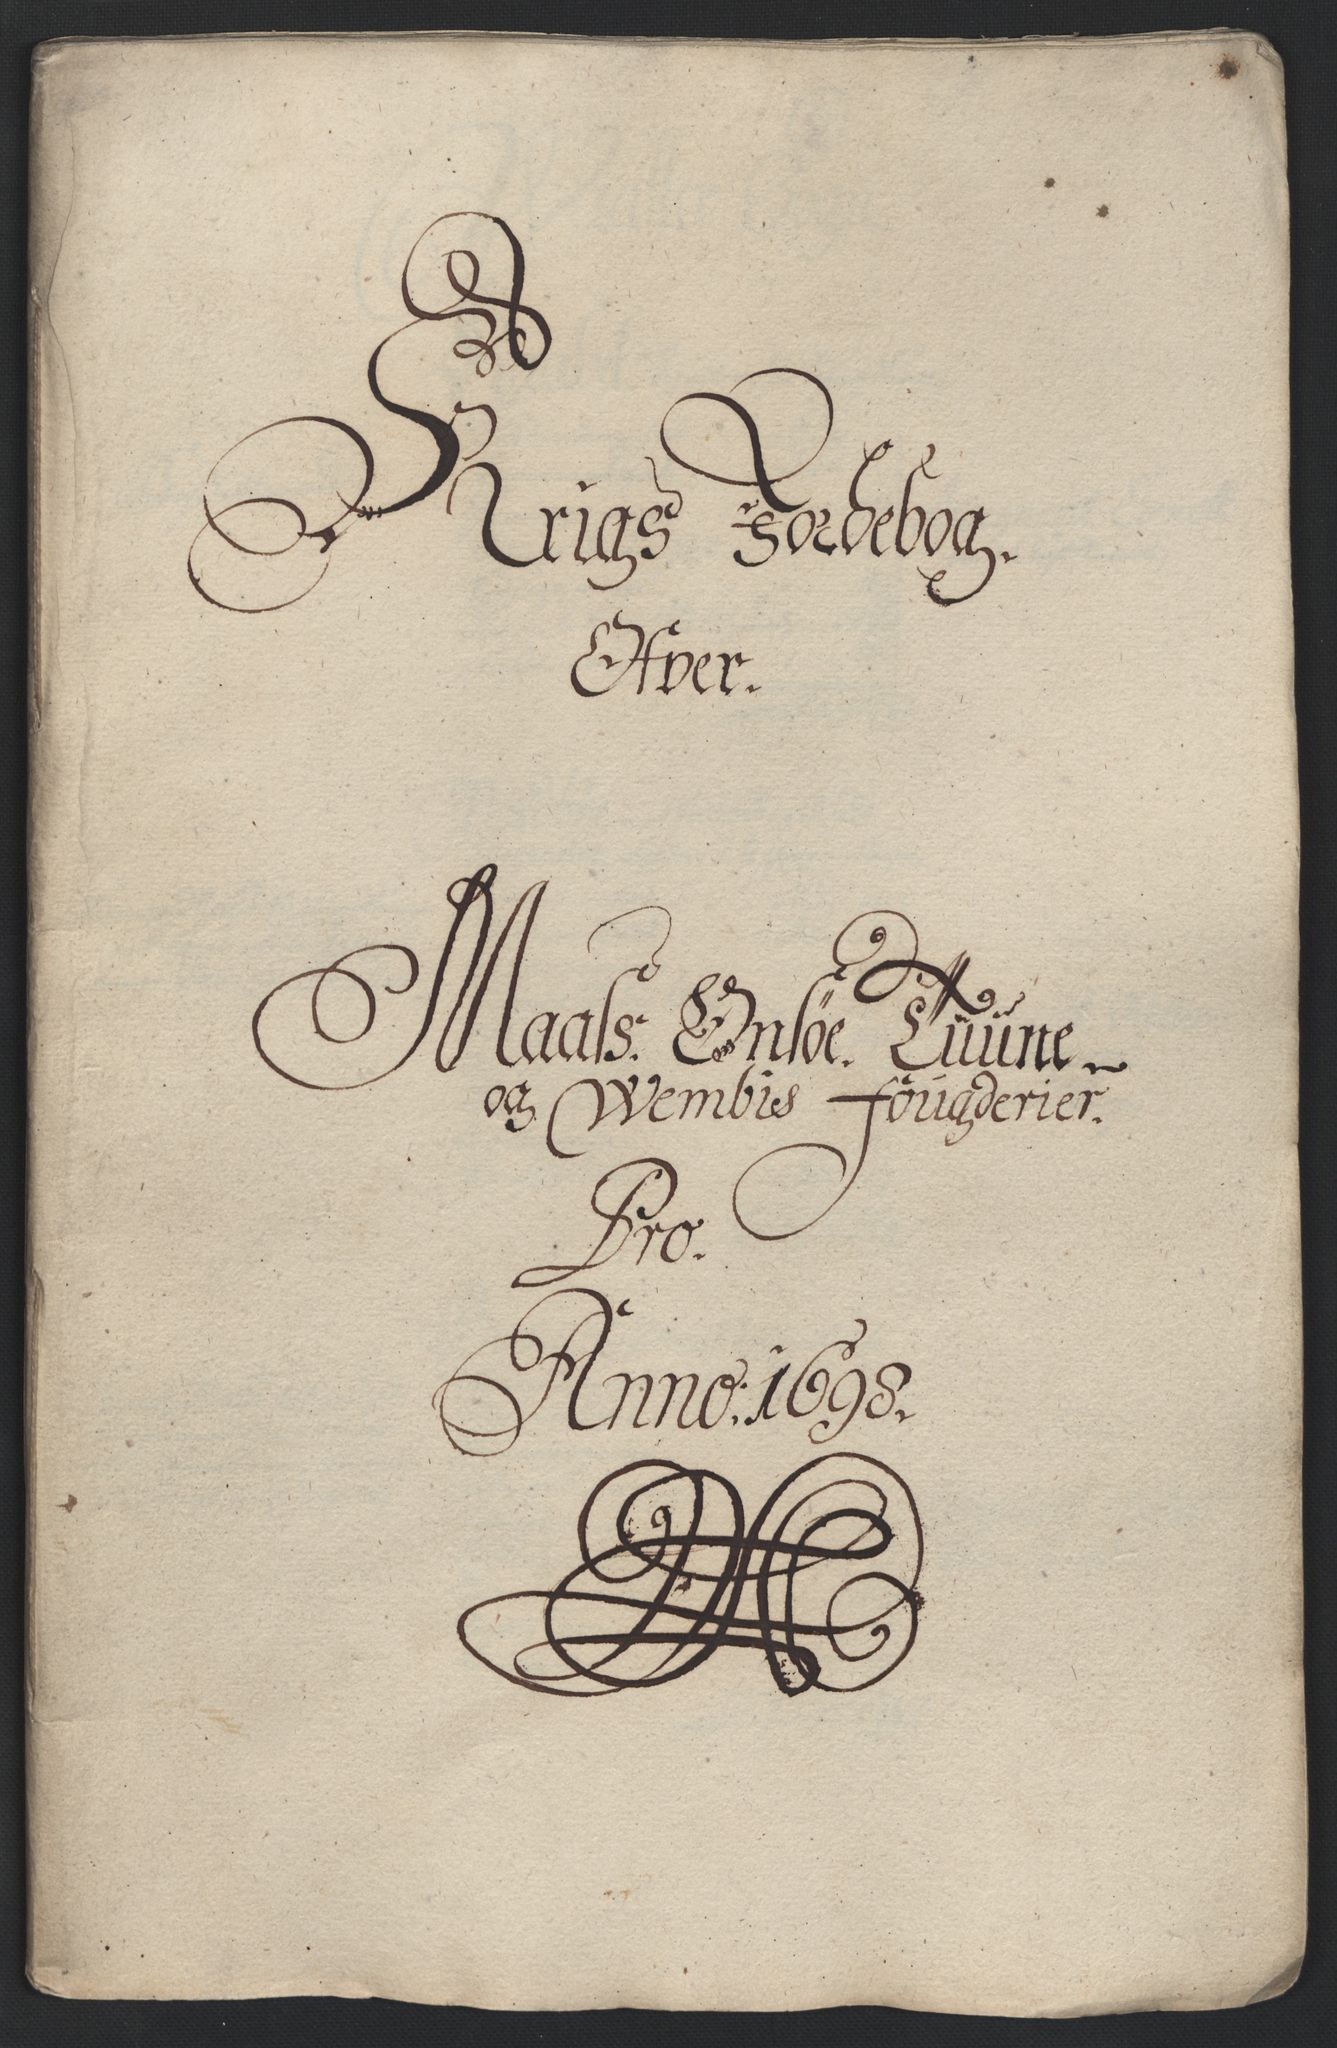 Krigs Jordebog.
Ofver.
Maals. Onsöe. Tuüne
og Wembis fougderier.
Pro.
Anno: 1698.